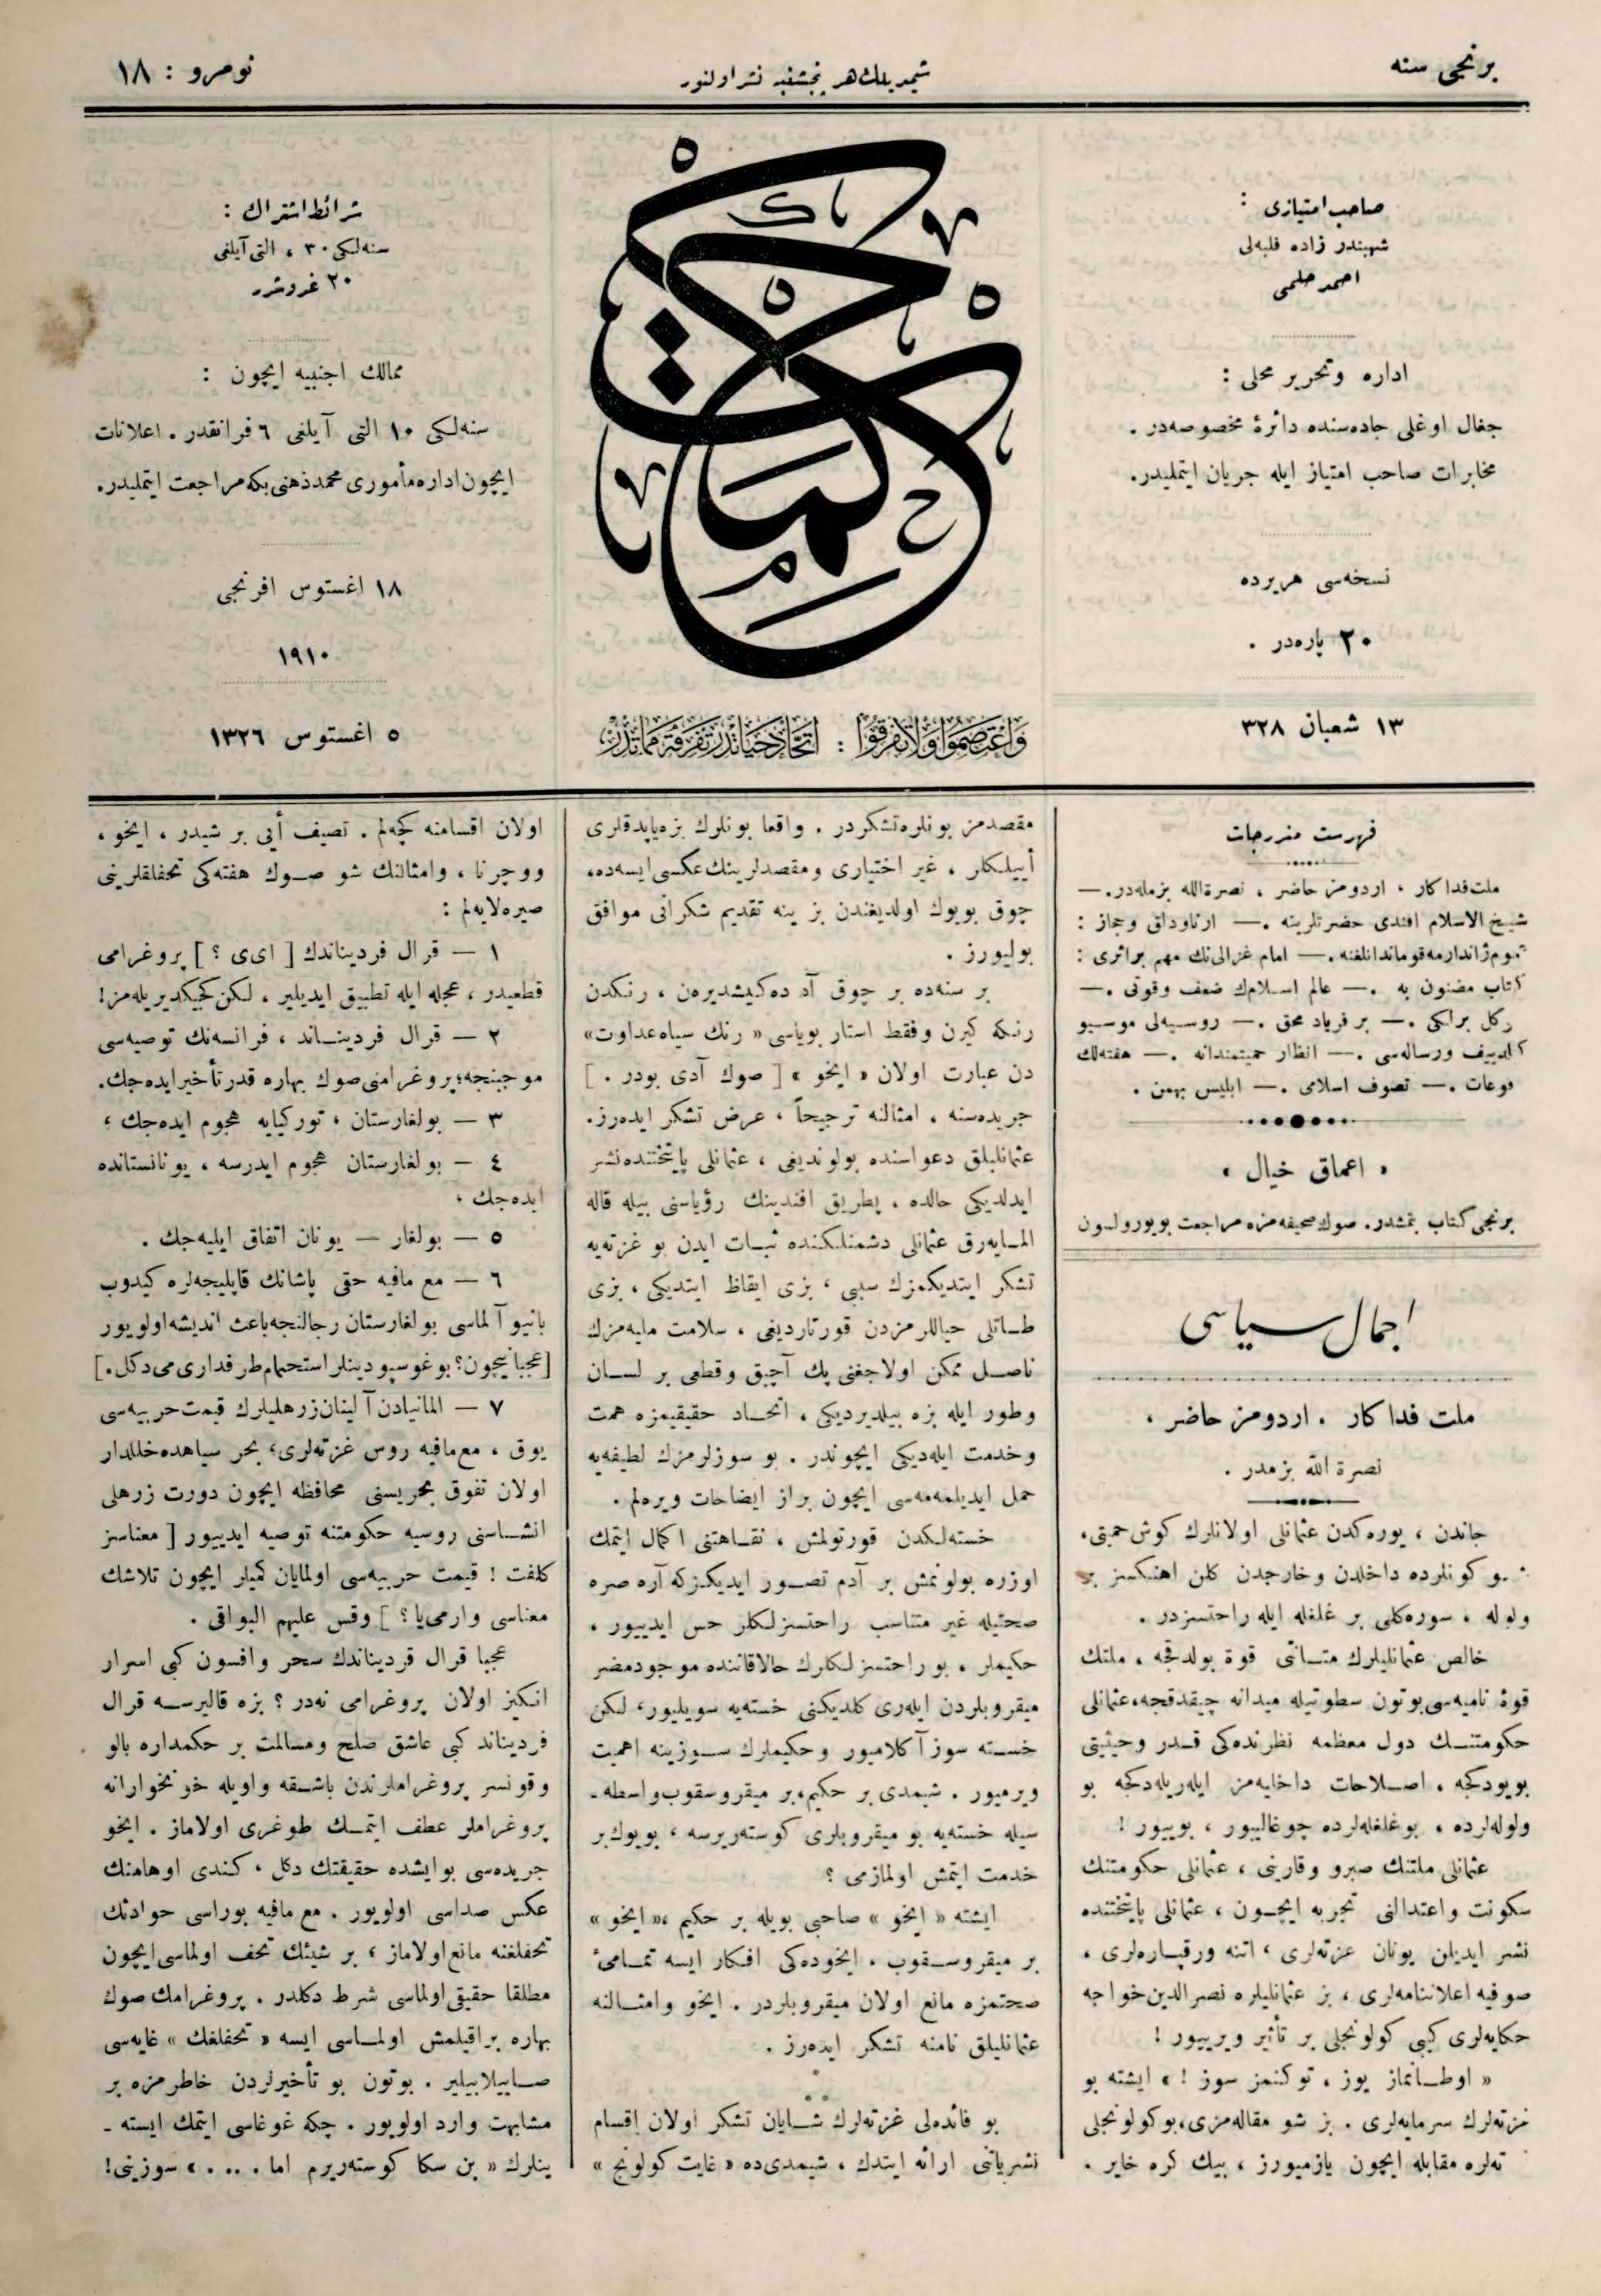 برنجی سنه
شیمدیلك هر پنجشنبه نشر اولنور
نومرو : ١٨
صاحب امتیازی :
شهبندر زاده فلبه‌لی
احمد حلمی
اداره وتحریر محلی :
جغال اوغلی جاده‌سنده دائرهٔ مخصوصه‌در .
مخابرات صاحب امتیاز ایله جریان ایتملیدر.
نسخه‌سی هریرده
٢٠ پاره‌در .
١٣ شعبان ٣٢٨
حكمت
واعتصموا ولاتفرقوا : اتحاد حیاتدر تفرقه مماتدر
شرائط اشتراك :
سنه‌لكی ٣٠ ، التی آیلغی
٢٠ غروشدر
ممالك اجنبیه ایچون :
سنه‌لكی ١٠ التی آیلغی ٦ فرانقدر . اعلانات
ایچون اداره مأموری محمد ذهنی بكه مراجعت ایتملیدر.
١٨ اغستوس افرنجی
١٩١٠
٥ اغستوس ١٣٢٦
فهرست مندرجات
ملت فداكار ، اردومز حاضر ، نصرة‌الله بزمله‌در. —
شیخ الاسلام افندی حضرتلرینه . — ارناودلق وحجاز :
ژاندارمه قوماندانلغنه . — امام غزالی‌نك مهم براثری :
كتاب مضنون به . — عالم اسلامك ضعف وقوتی . —
براكی . — بر فریاد محق . — روسیه‌لی موسیو
ورساله‌سی . — انظار حمیتمندانه . — هفته‌لك
وقوعات . — تصوف اسلامی . — ابلیس بهمن .
« اعماق خیال »
برنجی كتاب بتمشدر. صوك صحیفه‌مزه مراجعت بویورولسون
اجمال سیاسی
ملت فداكار ، اردومز حاضر ،
نصرة الله بزمدر .
جاندن ، یوره‌كدن عثمانلی اولانلرك كوش حمیتی،
بو كونلرده داخلدن وخارجدن كلن اهنكسز بر
ولوله ، سوره‌كلی بر غلغله ایله راحتسزدر .
خالص عثمانلیلرك متانتی قوة بولدقجه ، ملتك
قوهٔ نامیه‌سی بوتون سطوتیله میدانه چیقدقجه، عثمانلی
حكومتنك دول معظمه نظرنده‌كی قدر وحیثیتی
بویودكجه ، اصلاحات داخلیه‌مز ایله‌ریله‌دكجه بو
ولوله‌لرده ، بو غلغله‌لرده چوغالییور ، بویییور !
عثمانلی ملتنك صبرو وقارینی ، عثمانلی حكومتنك
سكونت واعتدالنی تجربه ایچون ، عثمانلی پایتختنده
نشر ایدیلن یونان غزته‌لری ، اتنه ورقپاره‌لری ،
صوفیه اعلاننامه‌لری ، بز عثمانلیلره نصرالدین خواجه
حكایه‌لری كیبی كولونجلی بر تأثیر ویرییور !
« اوطانماز یوز ، توكنمز سوز ! » ایشته بو
غزته‌لرك سرمایه‌لری . بز شو مقاله‌مزی، بو كولونجلی
ته‌لره مقابله ایچون یازمیورز ، بیك كره خایر .
مقصدمز بونلره تشكردر . واقعا بونلرك بزه یاپدقلری
أییلكلر ، غیر اختیاری ومقصدلرینك عكسی ایسه‌ده،
چوق بویوك اولدیغندن بز ینه تقدیم شكرانی موافق
بولیورز .
بر سنه‌ده بر چوق آد ده‌كیشدیره‌ن ، رنكدن
رنكه كیرن وفقط استار بویاسی « رنك سیاه عداوت »
دن عبارت اولان « ایخو » [ صوك آدی بودر . ]
جریده‌سنه ، امثالنه ترجیحاً ، عرض تشكر ایده‌رز.
عثمانلیلق دعواسنده بولوندیغی ، عثمانلی پایتختنده نشر
ایدلدیكی حالده ، پطریق افندینك رؤیاسنی بیله قاله
المایه‌رق عثمانلی دشمنلكنده ثبات ایدن بو غزته‌یه
تشكر ایتدیكمزك سببی ، بزی ایقاظ ایتدیكی ، بزی
طاتلی حیاللرمزدن قورتاردیغی ، سلامت ملیه‌مزك
ناصل ممكن اولاجغنی پك آچیق وقطعی بر لسان
وطور ایله بزه بیلدیردیكی ، اتحاد حقیقیمزه همت
وخدمت ایله‌دیكی ایچوندر . بو سوزلرمزك لطیفه‌یه
حمل ایدیلمه‌مه‌سی ایچون براز ایضاحات ویره‌لم .
خسته‌لكدن قورتولمش ، نقاهتنی اكمال ایتمك
اوزره بولونمش بر آدم تصور ایدیكزكه آره صره
صحتیله غیر متناسب راحتسزلكلر حس ایدییور ،
حكیملر ، بو راحتسزلكلرك حالا قاننده موجود مضر
میقروبلردن ایله‌ری كلدیكنی خسته‌یه سویلیور، لكن
خسته سوز آكلامیور وحكیملرك سوزینه اهمیت
ویرمیور . شیمدی بر حكیم، بر میقروسقوب واسطه‌-
سیله خسته‌یه بو میقروبلری كوسته‌ریرسه ، بویوك بر
خدمت ایتمش اولمازمی ؟
ایشته « ایخو » صاحبی بویله بر حكیم ، « ایخو »
بر میقروسقوب . ایخوده‌كی افكار ایسه تمامیٔ
صحتمزه مانع اولان میقروبلردر . ایخو وامثالنه
عثمانلیلق نامنه تشكر ایده‌رز .
بو فائده‌لی غزته‌لرك شایان تشكر اولان اقسام
نشریاتنی ارائه ایتدك ، شیمدی‌ده « غایت كولونج »
اولان اقسامنه كچه‌لم . تصنیف أیی بر شیدر ، ایخو ،
ووچرنا ، وامثالنك شو صوك هفته‌كی تحفلقلرینی
صیره‌لایه‌لم :
١ — قرال فردیناندك [ ای‌ی ؟ ] پروغرامی
قطعیدر ، عجله ایله تطبیق ایدیلیر ، لكن كجیكدیریله‌مز!
٢ — قرال فردیناند ، فرانسه‌نك توصیه‌سی
موجبنجه؛ پروغرامنی صوك بهاره قدر تأخیر ایده‌جك.
٣ — بولغارستان ، توركیایه هجوم ایده‌جك ،
٤ — بولغارستان هجوم ایدرسه ، یونانستانده
ایده‌جك ،
٥ — بولغار — یونان اتفاق ایلیه‌جك .
٦ — مع مافیه حقی پاشانك قاپلیجه‌لره كیدوب
بانیو آلماسی بولغارستان رجالنجه باعث اندیشه اولویور
[عجبا نیچون؟ بو غوسپودینلر استحمام طرفداری می دكل.]
٧ — المانیادن آلینان زرهلیلرك قیمت حربیه‌سی
یوق ، مع مافیه روس غزته‌لری؛ بحر سیاهده خللدار
اولان تفوق بحریسنی محافظه ایچون دورت زرهلی
انشاسنی روسیه حكومتنه توصیه ایدییور [ معناسز
كلفت ! قیمت حربیه‌سی اولمایان كمیلر ایچون تلاشك
معناسی وارمی‌یا ؟ ] وقس علیهم البواقی .
عجبا قرال فردیناندك سحر وافسون كبی اسرار
انكیز اولان پروغرامی نه‌در ؟ بزه قالیرسه قرال
فردیناند كبی عاشق صلح ومسالمت بر حكمداره بالو
وقونسر پروغراملرندن باشقه واویله خونخوارانه
پروغراملر عطف ایتمك طوغری اولاماز . ایخو
جریده‌سی بو ایشده حقیقتك دكل ، كندی اوهامنك
عكس صداسی اولویور . مع مافیه بوراسی حوادثك
تحفلغنه مانع اولاماز ، بر شیئك تحف اولماسی ایچون
مطلقا حقیقی اولماسی شرط دكلدر . پروغرامك صوك
بهاره براقیلمش اولماسی ایسه « تحفلغك » غایه‌سی
صاییلابیلیر . بوتون بو تأخیرلردن خاطرمزه بر
مشابهت وارد اولویور . چكه غوغاسی ایتمك ایسته -
ینلرك « بن سكا كوسته‌ریرم اما . . . . » سوزینی!